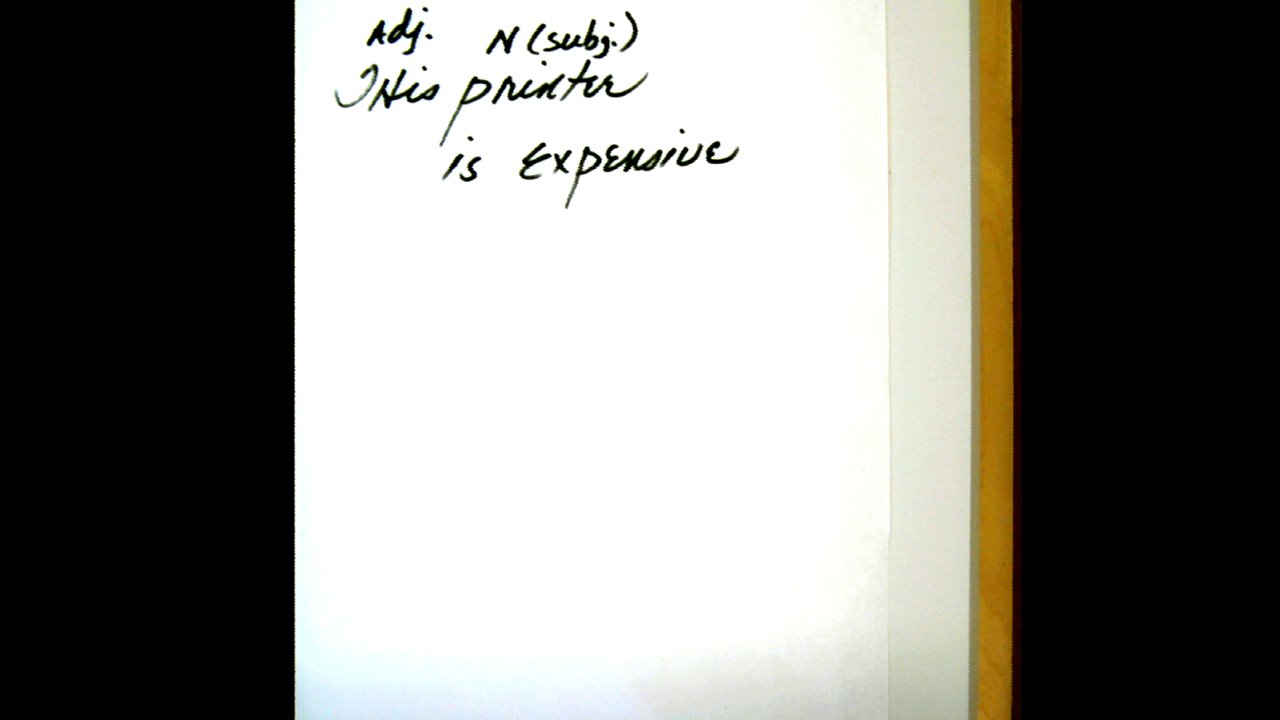 Adj. N (subj.)
THis printer
is Expensive